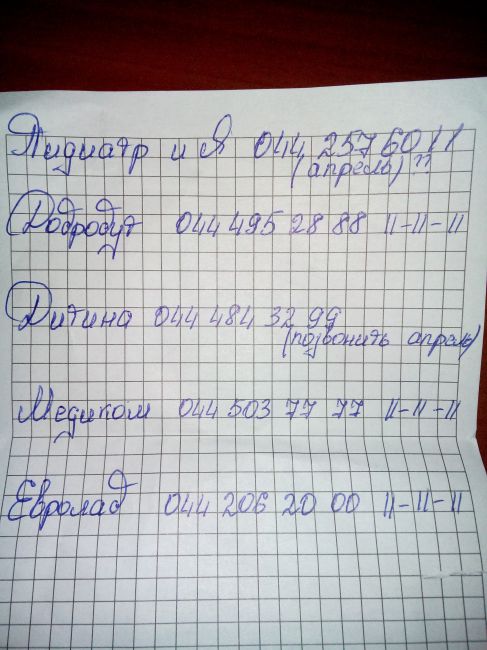 Пидиатр и Я 044 257 60 11
(апрель) ??
Добробут 044 495 28 88 11-11-11
Дитина 044 484 32 99
(позвонить апрель)
Медиком 044 503 77 77 11-11-11
Евролаб 044 206 20 00 11-11-11